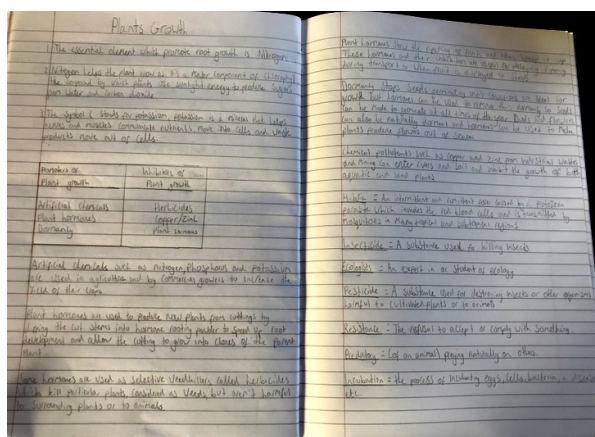 Plants Growth
1. The essential element which promote root growth is Nitrogen
2. Nitrogen helps the plant grow as it's a major component of chlorophyll
the compound by which plants use sunlight energy to produce sugars
from water and carbon dioxide
3. The symbol K stands for potassium, potassium is a mineral that helps
nerves and muscles communicate nutrients move into cells and waste
products move out of cells.
Promoters of Plant growth
Inhibitors of Plant growth
Artificial chemicals
Herbicides
Plant hormones
Copper/Zinc
Dormancy
Plant hormones
Artificial chemicals such as nitrogen, phosphorus and potassium
are used in agriculture and by commercial growers to increase the
yield of the crops
Plant hormones are used to produce new plants from cuttings by
dipping the cut stems into hormone rooting powder to speed up root
development and allow the cutting to grow into clones of the parent
plant.
Some hormones are used as selective weedkillers called herbicides
which kill particular plants, considered as weeds, but aren't harmful
to surrounding plants or to animals.
Plant hormones slow the ripening of fruits and
These hormones and their inhibitors are used for delaying ripening
during transport or when fruit is displayed in
Dormancy stops seeds germinating until conditions are ideal for
growth. Plant hormones can be used to remove the dormancy in seeds
can be made to germinate at all times of the year. Buds and
can also be naturally dormant and hormones can be used to make
plants produce flowers out of season
Chemical pollutants such as copper and zinc from industrial wastes
and mining can enter rivers and soil and inhibit the growth of both
aquatic and land plants
Malaria = An intermittent and remittent fever caused by a protozoan
parasite which invades the red blood cells and is transmitted by
mosquitoes in many tropical and subtropical regions
Insecticide = A substance used for killing insects
Ecologists = An expert in or student of ecology
Pesticide = A substance used for destroying insects or other organisms
harmful to cultivated plants or to animals
Resistance - The refusal to accept or comply with something.
Predatory = (of an animal) preying naturally on others.
Incubation = the process of incubating eggs, cells, bacteria, a disease
etc.